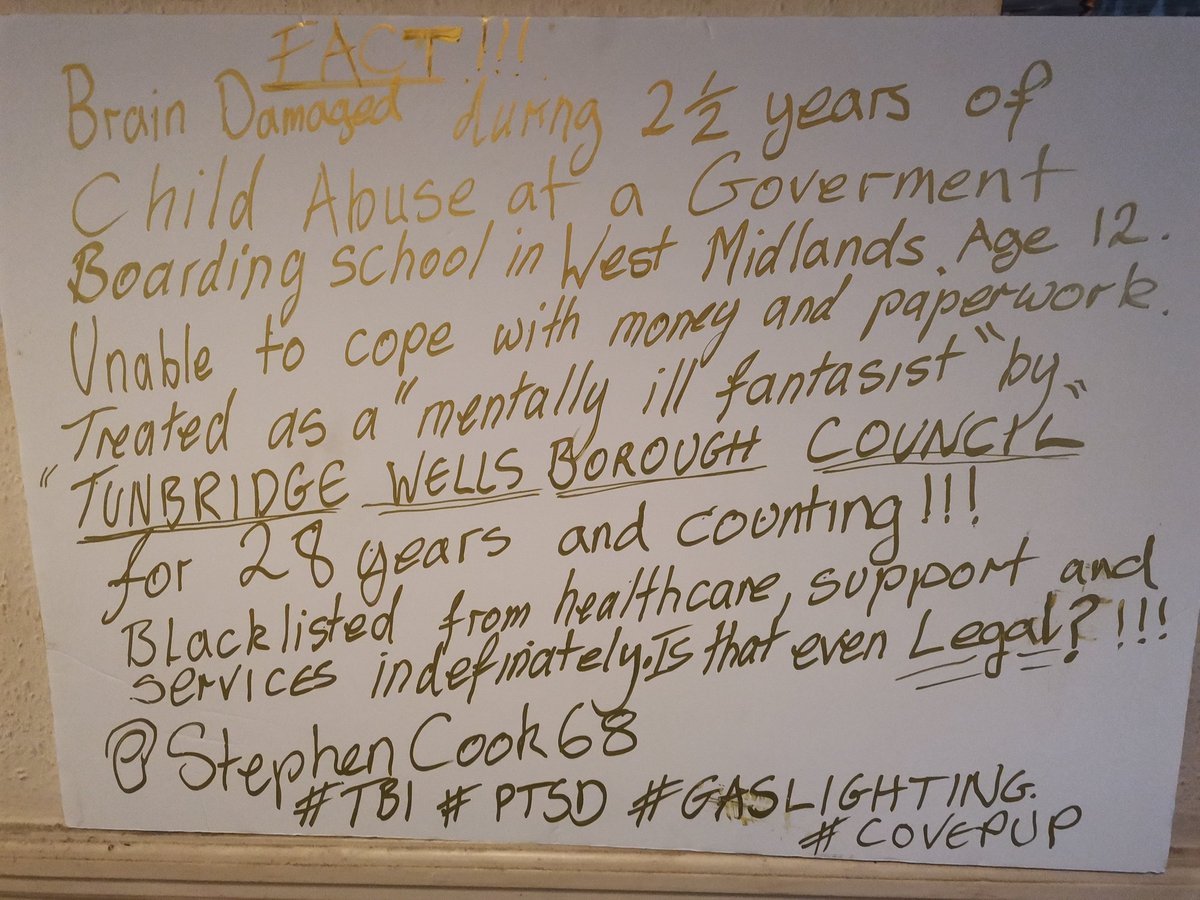 FACT!!!
Brain Damaged during 2½ years of
Child Abuse at a Goverment
Boarding school in West Midlands. Age 12.
Unable to cope with money and paperwork.
Treated as a "mentally ill fantasist" by
"TUNBRIDGE WELLS BOROUGH COUNCIL"
for 28 years and counting!!!
Blacklisted from healthcare, support and
services indefinately. Is that even Legal?!!!
@StephenCook68
#TBI # PTSD #GASLIGHTING.
#COVERUP